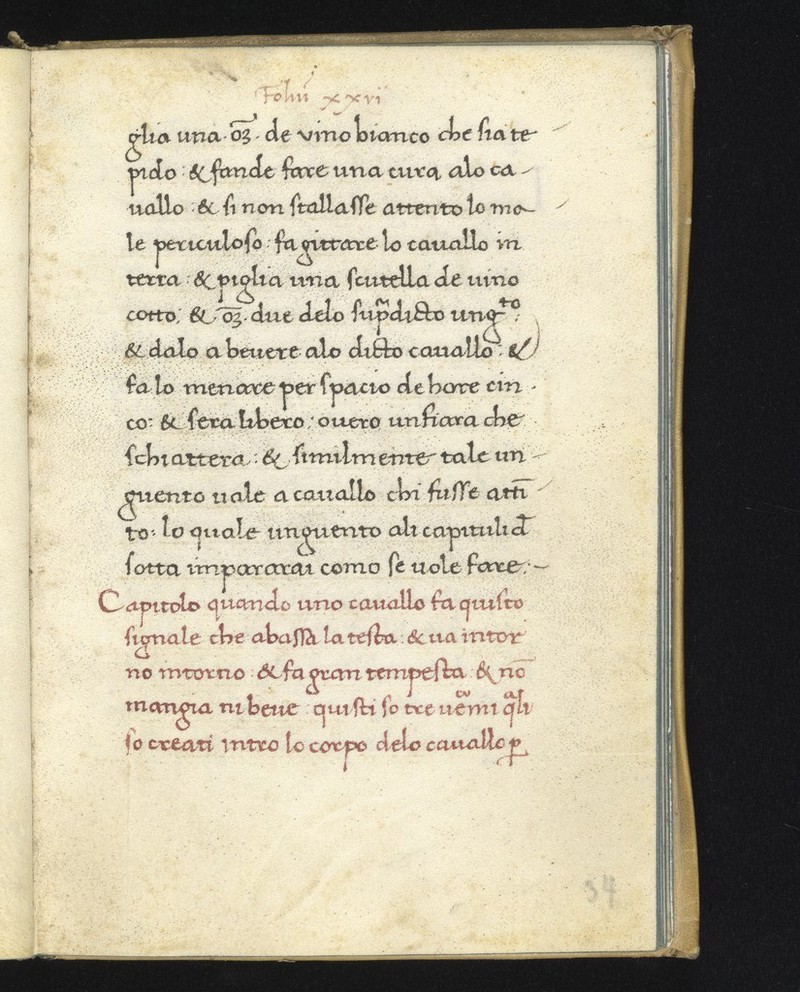 Foliū xxvi
glia una · oʒ · de vino bianco che sia te
pido : & fande fare una cura alo ca
vallo : & si non stallasse attento lo ma
le periculoso : fa gittare lo cauallo in
terra : & piglia una scutella de uino
cotto : & · oʒ · due delo supͣdicto ungᵗᵒ :
& dalo a beuere alo dicto cauallo : &
fa lo menare per spacio de hore cin
co : & sera libero : ouero unfiara che
schiattera : & similmente tale un
guento uale a cauallo chi fusse attī
to : lo quale unguento ali capituli d̄
sotta impararai como se uole fare :
Capitolo quando uno cauallo fa quisto
signale che abassa la testa : & ua intor
no intorno : & fa gran tempesta : & nō
mangia ni beue : quisti so tre ueͣmi qͣli
so creati intro lo corpo delo cauallo ꝑ
34